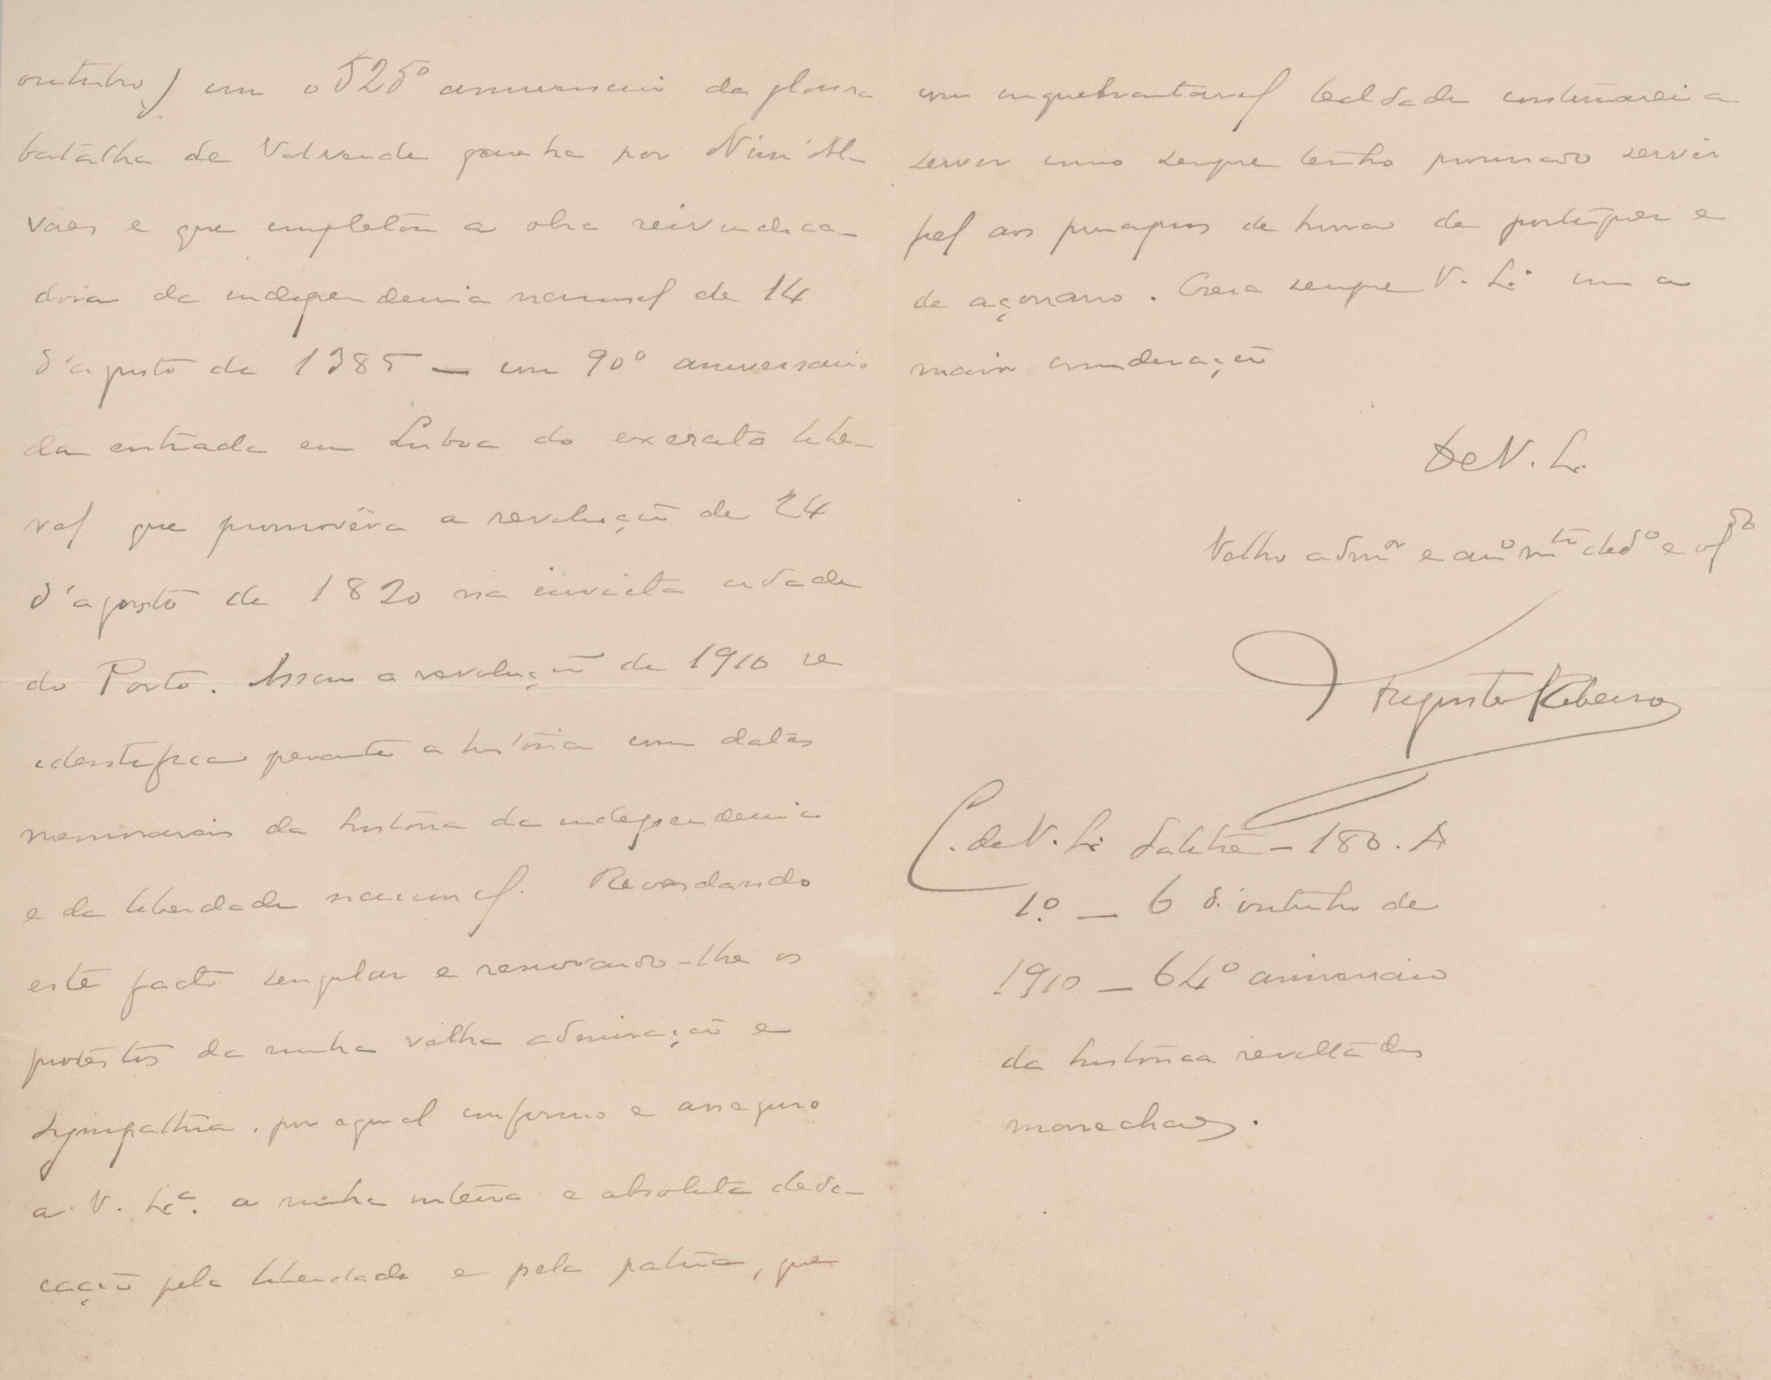 outubro) com o 525º anniversario da gloriosa
batalha de Valverde ganha por Nun'Al-
vares e que completou a obra reivindica-
dora da independencia nacional de 14
d'agosto de 1385 — com 90º aniversario
da entrada em Lisboa do exercito libe-
ral que promovêra a revolução de 24
d'agosto de 1820 na invicta cidade
do Porto. Assim a revolução de 1910 se
identifica perante a historia com datas
memoraveis da historia da independencia
e da liberdade nacional. Recordando
este facto singular e renovando-lhe os
protestos da minha velha admiração e
sympathia, por egual confirmo e asseguro
a V. Exª. a minha inteira e absoluta dedi-
cação pela liberdade e pela patria, que
com inquebrantavel lealdade continuarei a
servir como sempre tenho procurado servir
fiel aos principios de honra de portuguez e
de açoriano. Creia sempre V. Ex. com a
maior consideração
De V. Ex.
Velho admor e amo mto dedo e obdo
Augusto Ribeiro
C. de V. Ex. Salitre – 180. A
1º. — 6 d'outubro de
1910 — 64º aniversario
da historica revolta dos
marechaes.